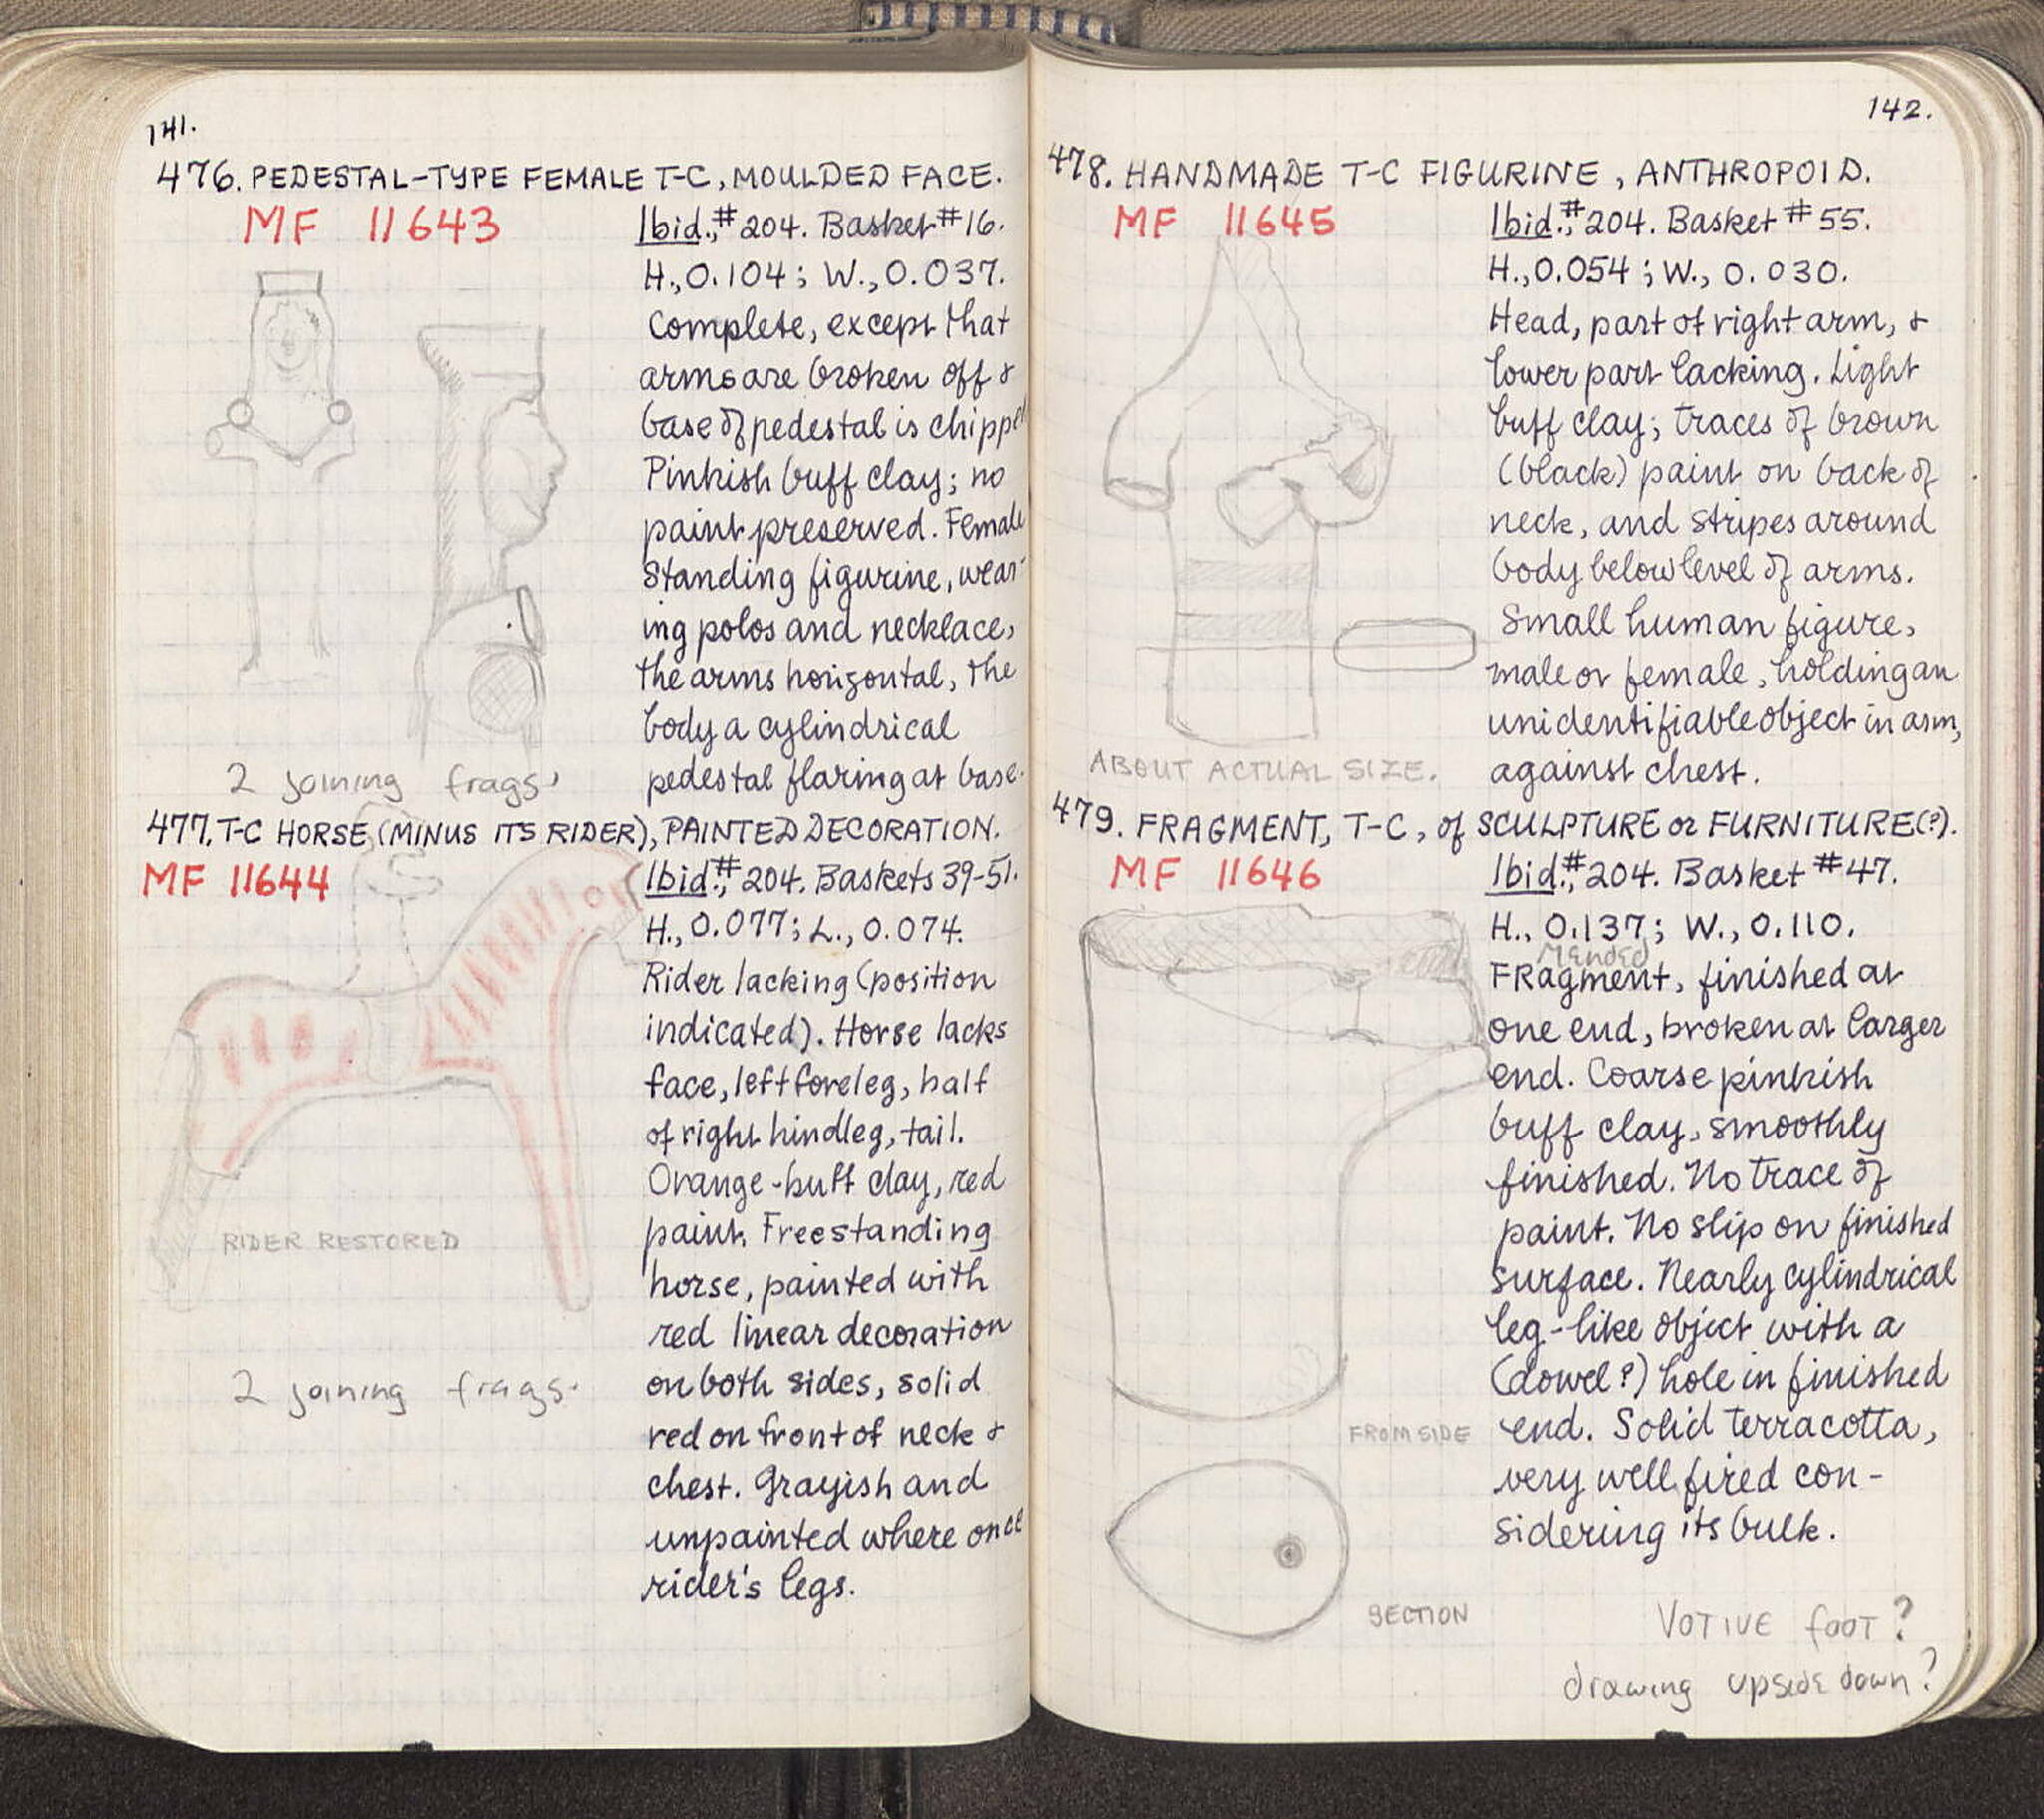 141.
476. PEDESTAL-TYPE FEMALE T-C, MOULDED FACE.
MF 11643
Ibid., #204. Basket #16.
H., 0.104; W., 0.037.
Complete, except that
arms are broken off &
base of pedestal is chipped
Pinkish buff clay; no
paint preserved. Female
standing figurine, wear-
ing polos and necklace,
the arms horizontal, the
body a cylindrical
pedestal flaring at base.
2 joining frags.
477. T-C HORSE (MINUS ITS RIDER), PAINTED DECORATION.
MF 11644
Ibid., #204. Baskets 39-51.
H., 0.077; L., 0.074.
Rider lacking (position
indicated). Horse lacks
face, left foreleg, half
of right hindleg, tail.
Orange-buff clay, red
paint. Freestanding
horse, painted with
red linear decoration
on both sides, solid
red on front of neck &
chest. Grayish and
unpainted where once
rider's legs.
RIDER RESTORED
2 joining frags.
142.
478. HANDMADE T-C FIGURINE, ANTHROPOID.
MF 11645
Ibid., #204. Basket #55.
H., 0.054; W., 0.030.
Head, part of right arm, &
lower part lacking. Light
buff clay; traces of brown
(black) paint on back of
neck, and stripes around
body below level of arms.
Small human figure,
male or female, holding an
unidentifiable object in arm,
against chest.
ABOUT ACTUAL SIZE.
479. FRAGMENT, T-C, of SCULPTURE or FURNITURE(?).
MF 11646
Ibid., #204. Basket #47.
H., 0.137; W., 0.110.
Mended
FRagment, finished at
one end, broken at larger
end. Coarse pinkish
buff clay, smoothly
finished. No trace of
paint. No slip on finished
surface. Nearly cylindrical
leg-like object with a
(dowel?) hole in finished
end. Solid terracotta,
very well fired con-
sidering its bulk.
FROM SIDE
SECTION
VOTIVE foot?
drawing upside down?